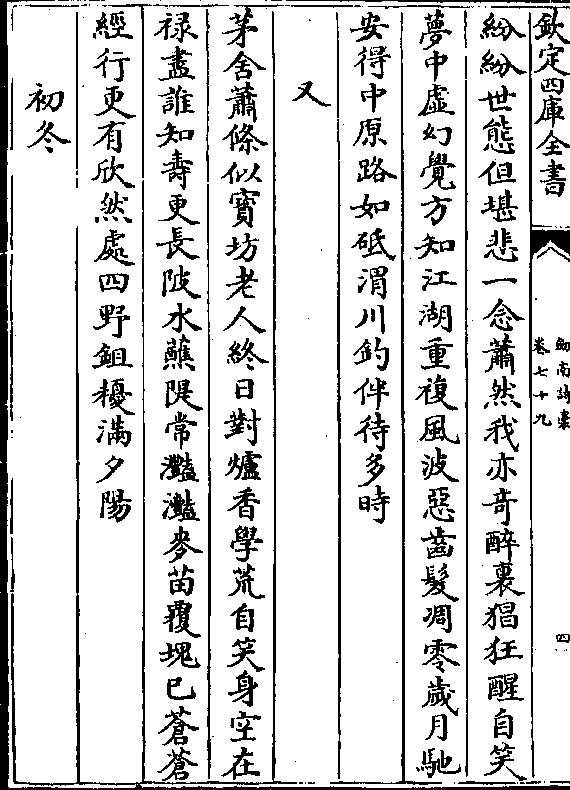 欽定四庫全書
劒南詩稾
卷七十九
四
紛紛世態但堪悲一念蕭然我亦奇醉裏猖狂醒自笑
夢中虛幻覺方知江湖重複風波惡齒髮凋零歲月馳
安得中原路如砥渭川釣伴待多時
又
茅舍蕭條似寳坊老人終日對爐香學荒自笑身空在
禄盡誰知壽更長陂水蘸隄常灩灩麥苗覆塊已蒼蒼
經行更有欣然處四野鉏耰滿夕陽
初冬